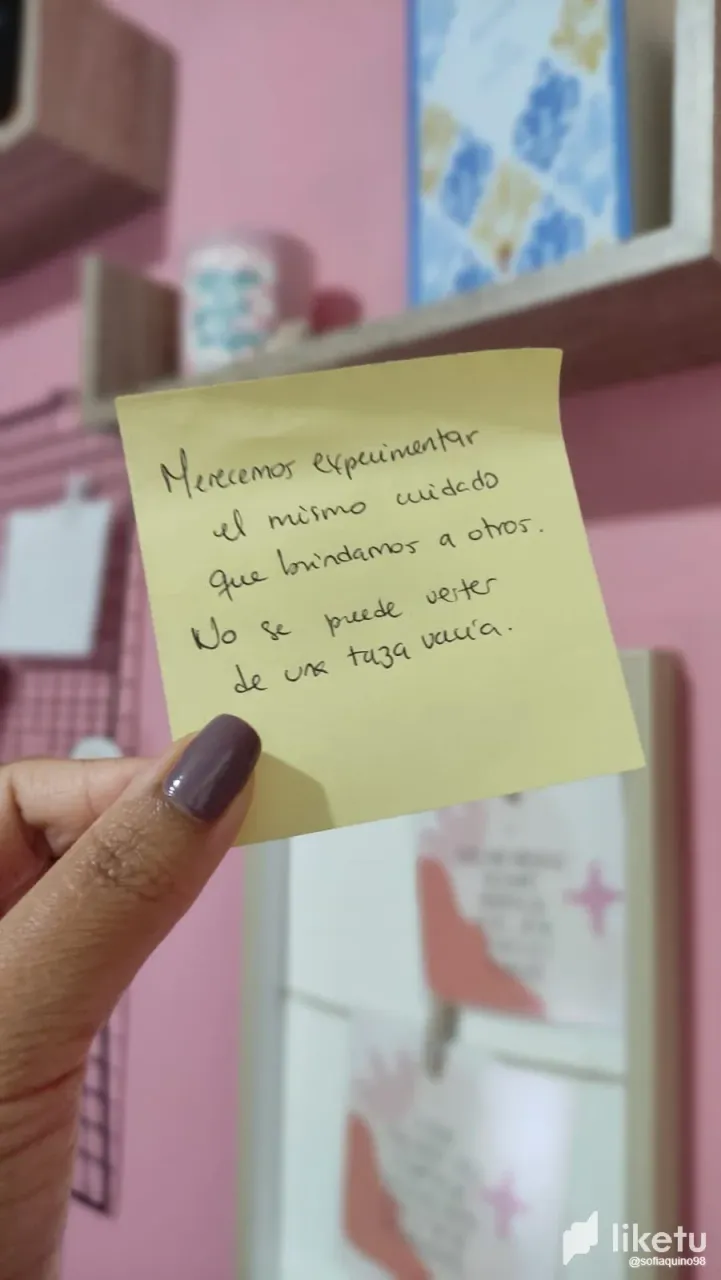 Merecemos experimentar
el mismo cuidado
que brindamos a otros.
No se puede verter
de una taza vacía.
liketu
@sofiaquino98